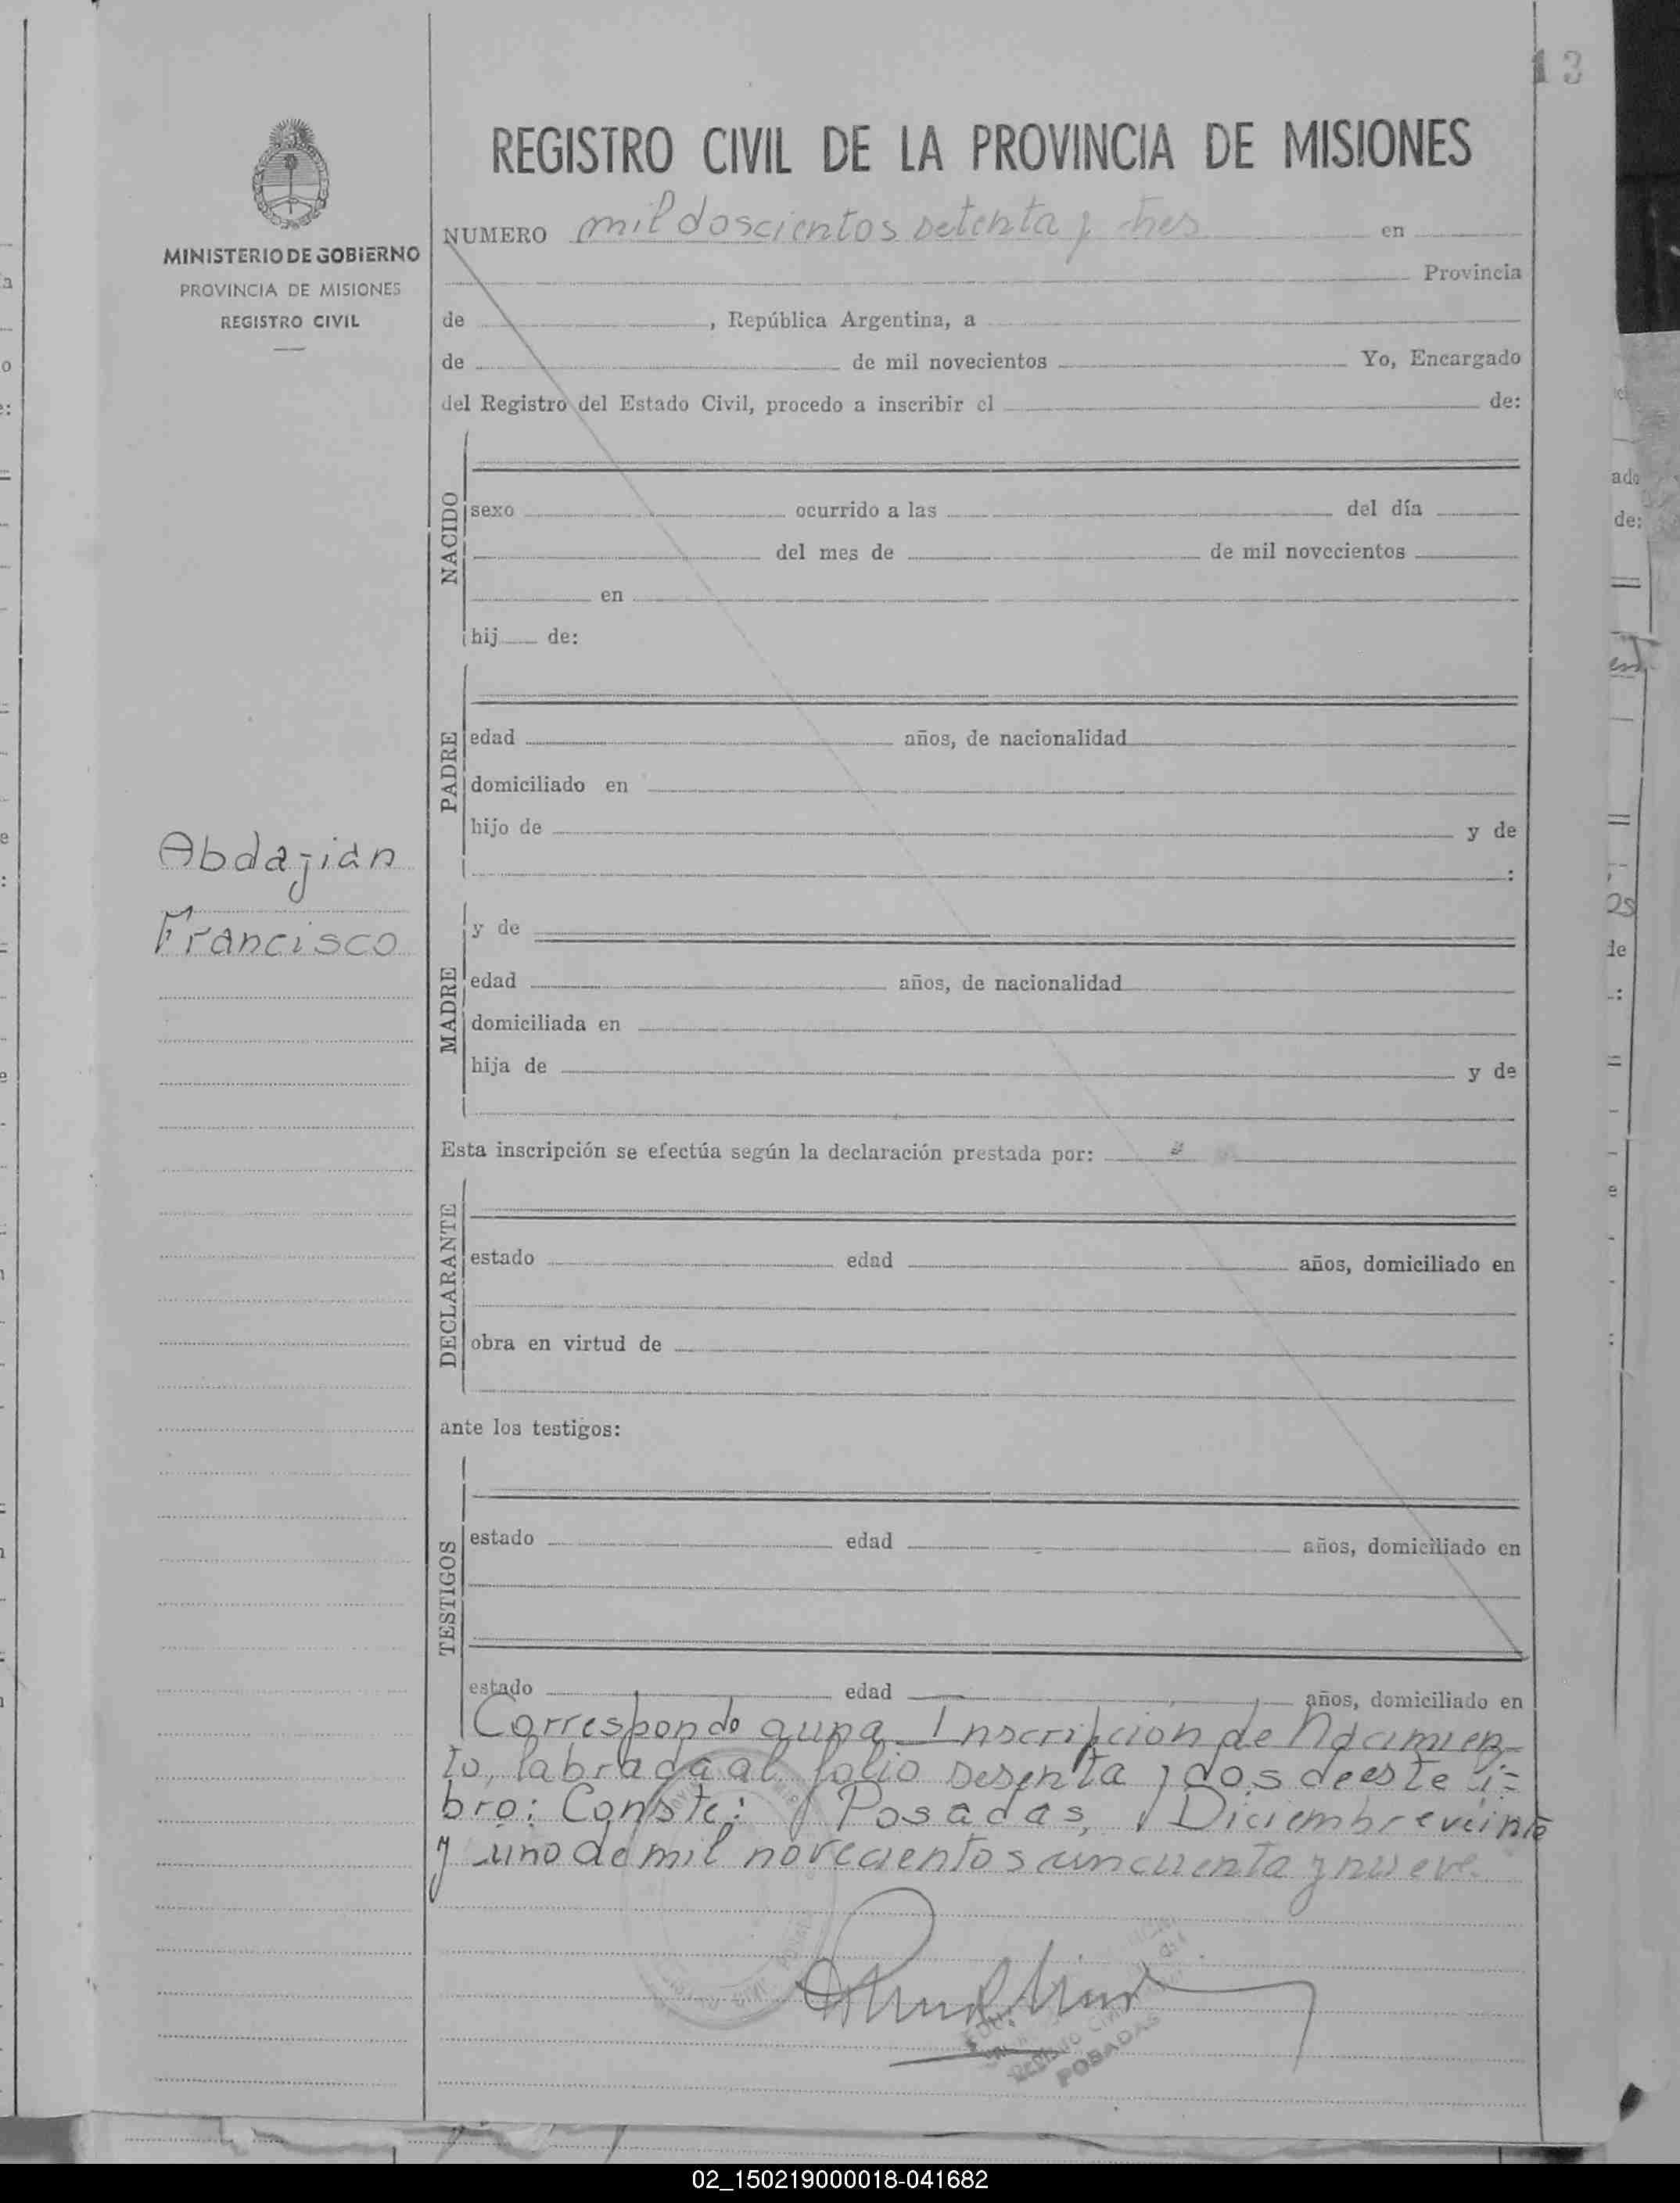 13
REGISTRO CIVIL DE LA PROVINCIA DE MISIONES
MINISTERIO DE GOBIERNO
PROVINCIA DE MISIONES
REGISTRO CIVIL
NUMERO mil doscientos setenta y tres en
Provincia
de , República Argentina, a
de de mil novecientos Yo, Encargado
del Registro del Estado Civil, procedo a inscribir el de:
NACIDO
sexo ocurrido a las del día
del mes de de mil novecientos
en
hij de:
PADRE
edad años, de nacionalidad
domiciliado en
hijo de y de
:
Abdajian
Francisco
MADRE
y de
edad años, de nacionalidad
domiciliada en
hija de y de
Esta inscripción se efectúa según la declaración prestada por:
DECLARANTE
estado edad años, domiciliado en
obra en virtud de
ante los testigos:
TESTIGOS
estado edad años, domiciliado en
estado edad años, domiciliado en
Correspondo a una Inscripcion de Nacimien
to, labrada al folio sesenta y dos de este li=
bro: Conste: Posadas, Diciembre veinte
y uno de mil novecientos cincuenta y nueve
Registro Civil
POSADAS
02_150219000018-041682